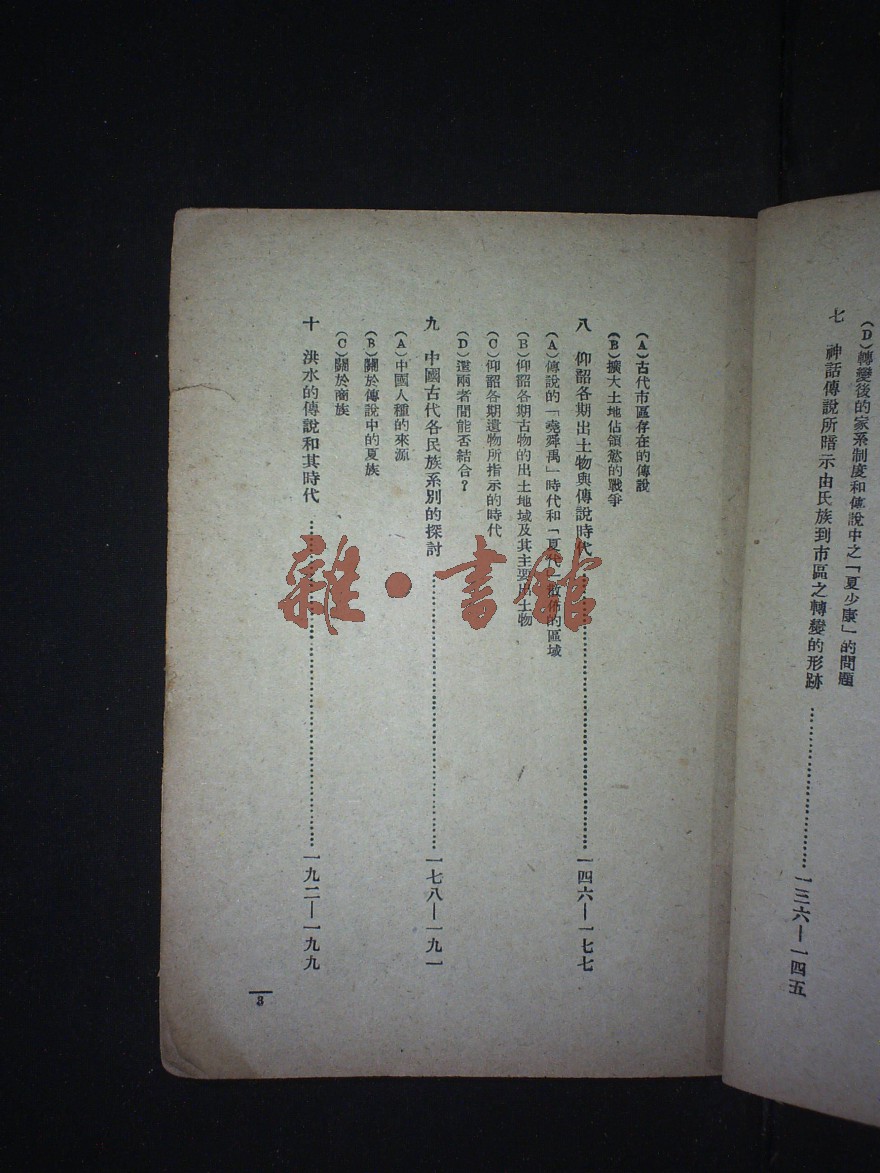 (D)轉變後的家系制度和傳說中之「夏少康」的問題
七 神話傳說所暗示由氏族到市區之轉變的形跡……一三六—一四五
(A)古代市區存在的傳說
(B)擴大土地佔領慾的戰爭
八 仰韶各期出土物與傳說時代……一四六—一七七
(A)傳說的「堯舜禹」時代和「夏代」散佈的區域
(B)仰韶各期古物的出土地域及其主要出土物
(C)仰韶各期遺物所指示的時代
(D)這兩者間能否結合?
九 中國古代各民族系別的探討……一七八—一九一
(A)中國人種的來源
(B)關於傳說中的夏族
(C)關於商族
十 洪水的傳說和其時代……一九二—一九九
3
雜·書館